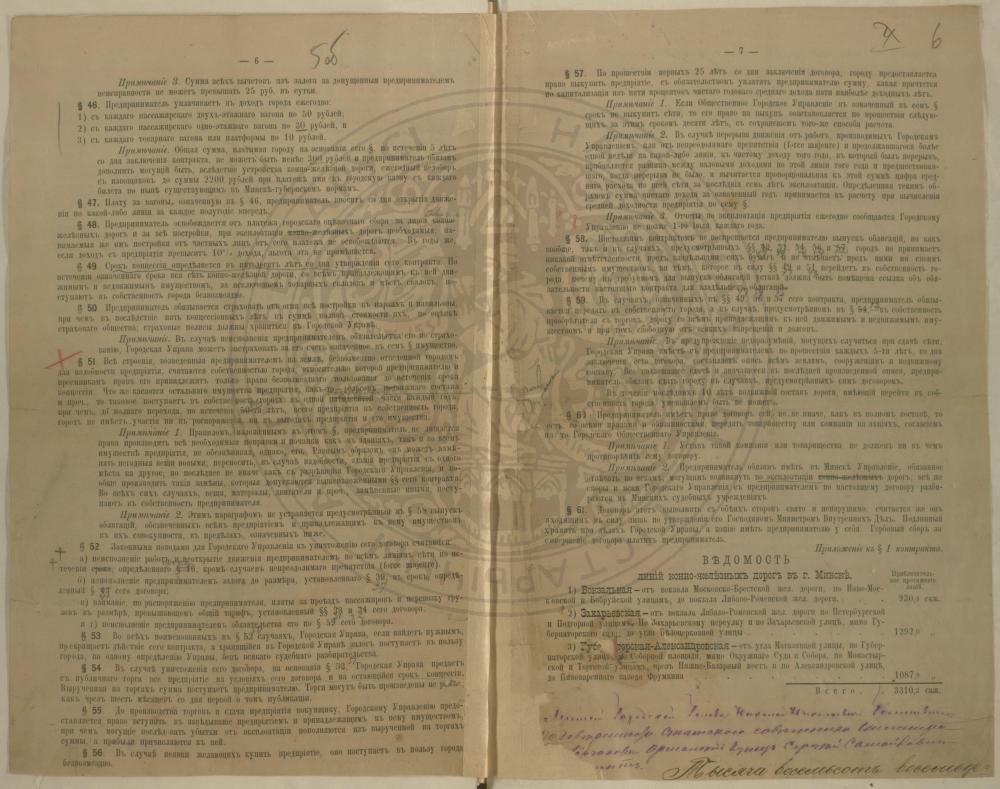 — 6 —
Примѣчаніе 3. Сумма всѣхъ вычетовъ изъ залога за допущенныя предпринимателемъ
неисправности не можетъ превышать 25 руб. въ сутки.
§ 46. Предприниматель уплачиваетъ въ доходъ города ежегодно:
1) съ каждаго пассажирскаго двухъ-этажнаго вагона по 50 рублей;
2) съ каждаго пассажирскаго одно-этажнаго вагона по 30 рублей, и
3) съ каждаго товарнаго вагона или платформы по 10 рублей.
Примѣчаніе. Общая сумма, платимая городу на основаніи сего §, по истеченіи 5 лѣтъ
со дня заключенія контракта, не можетъ быть менѣе 300 рублей и предприниматель обязанъ
дополнить могущій быть, вслѣдствіе устройства конно-желѣзной дороги, ежегодный недоборъ
съ извощиковъ до суммы 2200 рублей при платежѣ ими въ городскую казну съ каждаго
билета по нынѣ существующимъ въ Минскѣ-губернскомъ нормамъ.
§ 47. Плату за вагоны, означенную въ § 46, предприниматель вноситъ со дня открытія движе-
нія по какой-либо линіи за каждое полугодіе впередъ.
§ 48. Предприниматель освобождается отъ платежа городскаго оцѣночнаго сбора за линіи конно-
желѣзныхъ дорогъ и за всѣ постройки, при эксплоатаціи конно-желѣзныхъ дорогъ необходимыя, за-
нимаемыя же имъ постройки отъ частныхъ лицъ отъ сего платежа не освобождаются. Въ годы же,
если доходъ съ предпріятія превыситъ 10% дохода, льгота эта не примѣняется.
§ 49. Срокъ концессіи опредѣляется въ пятьдесятъ лѣтъ со дня утвержденія сего контракта. По
истеченіи означеннаго срока вся сѣть конно-желѣзной дороги, со всѣмъ принадлежащимъ къ ней дви-
жимымъ и недвижимымъ имуществомъ, за исключеніемъ товарныхъ складовъ и мѣстъ складовъ, по-
ступаютъ въ собственность города безвозмездно.
§ 50 Предприниматель обязывается страховать отъ огня всѣ постройки въ паркахъ и павильоны,
при чемъ въ послѣдніе пять концессіонныхъ лѣтъ въ суммѣ полной стоимости ихъ, по оцѣнкѣ
страховаго общества; страховые полисы должны храниться въ Городской Управѣ.
Примѣчаніе. Въ случаѣ неисполненія предпринимателемъ обязательства его по страхо-
ванію, Городская Управа можетъ застраховать за его счетъ означенное въ семъ § имущество.
§ 51. Всѣ строенія, возведенныя предпринимателемъ на землѣ, безвозмездно отведенной городомъ
для надобности предпріятія, считаются собственностью города, относительно которой предпринимателю и
преемникамъ правъ его принадлежитъ только право безвозмезднаго пользованія до истеченія срока
концессіи. Что же касается остальнаго имущества предпріятія,
города не имѣетъ участія ни въ распоряженіи, ни въ выгодахъ предпріятія и его имущества.
Примѣчаніе 1. Правиломъ, изложеннымъ въ этомъ §, предприниматель не лишается
права производить всѣ необходимыя поправки и починки какъ въ зданіяхъ, такъ и во всемъ
имуществѣ предпріятія, не обезцѣнивая, однако, его. Равнымъ образомъ онъ можетъ замѣ-
нять негодныя вещи новыми, переносить, въ случаѣ надобности, зданія предпріятія съ одного
мѣста на другое; но послѣднее не иначе какъ съ разрѣшенія Городскаго Управленія, и во-
обще производить такія замѣны, которыя допускаются вышеизложенными §§ сего контракта.
Во всѣхъ сихъ случаяхъ, вещи, матеріалы, двигатели и проч., замѣненные иными, посту-
паютъ въ собственность предпринимателя.
Примѣчаніе 2. Этимъ параграфомъ не устраняется предусмотрѣнный въ § 58 выпускъ
облигацій, обезпеченныхъ всѣмъ предпріятіемъ и принадлежащимъ къ нему имуществомъ
въ ихъ совокупности, въ предѣлахъ, означенныхъ ниже.
§ 52 Законными поводами для Городскаго Управленія къ уничтоженію сего договора считаются:
а) неисполненіе работъ и неоткрытіе движенія предпринимателемъ по всѣмъ линіямъ сѣти по ис-
теченіи срока, опредѣленнаго § 16, кромѣ случаевъ непреодолимаго препятствія (force majeure).
б) непополненіе предпринимателемъ залога до размѣра, установленнаго § 39, въ срокъ, опредѣ-
ленный § 37 сего договора;
в) взиманіе, по распоряженію предпринимателя, платы за проѣздъ пассажировъ и перевозку гру-
зовъ въ размѣрѣ, превышающемъ общій тарифъ, установленный §§ 33 и 34 сего договора.
и г) неисполненіе предпринимателемъ обязательства его по § 59 сего договора.
§ 53 Во всѣхъ поименованныхъ въ § 52 случаяхъ, Городская Управа, если найдетъ нужнымъ,
прекращаетъ дѣйствіе сего контракта, а хранящійся въ Городской Управѣ залогъ поступаетъ въ пользу
города, по одному опредѣленію Управы, безъ всякаго судебнаго разбирательства.
§ 54. Въ случаѣ уничтоженія сего договора, на основаніи § 52, Городская Управа продаетъ
съ публичнаго торга все предпріятіе на условіяхъ сего договора и на оставшійся срокъ концессіи.
Вырученная на торгахъ сумма поступаетъ предпринимателю. Торги могутъ быть произведены не ранѣе,
какъ чрезъ шесть мѣсяцевъ со дня первой о томъ публикаціи.
§ 55. До производства торговъ и сдачи предпріятія покупщику, Городскому Управленію предо-
ставляется право вступить въ завѣдываніе предпріятіемъ и принадлежащимъ къ нему имуществомъ,
при чемъ могущіе послѣдовать убытки отъ эксплоатаціи пополняются изъ вырученной на торгахъ
суммы, а прибыли причисляются къ ней.
§ 56. Въ случаѣ неявки желающихъ купить предпріятіе, оно поступаетъ въ пользу города
безвозмездно.
— 7 —
6
§ 57. По прошествіи первыхъ 25 лѣтъ со дня заключенія договора, городу предоставляется
право выкупить предпріятіе, съ обязательствомъ уплатить предпринимателю сумму, какая причтется
по капитализаціи изъ пяти процентовъ чистаго годоваго средняго дохода пяти наиболѣе доходныхъ лѣтъ.
Примѣчаніе 1. Если Общественное Городское Управленіе въ означенный въ семъ §
срокъ не выкупитъ сѣти, то его право на выкупъ возстановляется по прошествіи слѣдую-
щихъ за этимъ срокомъ десяти лѣтъ, съ сохраненіемъ того-же способа расчета.
Примѣчаніе 2. Въ случаѣ перерыва движенія отъ работъ, производимыхъ Городскимъ
Управленіемъ, или отъ непреодолимаго препятствія (force majeure) и продолжавшагося болѣе
одной недѣли на какой-либо линіи, къ чистому доходу того года, въ который былъ перерывъ,
прибавляется разница между валовыми доходами по этой линіи того года и предшествовав-
шаго, когда перерыва не было, и вычитается пропорціональная къ этой суммѣ цифра сред-
няго расхода по всей сѣти за послѣднія семь лѣтъ эксплоатаціи. Опредѣленная такимъ об-
разомъ сумма чистаго дохода за означенный годъ принимается къ расчету при вычисленіи
средней доходности предпріятія по сему §.
Примѣчаніе 3. Отчеты по эксплоатаціи предпріятія ежегодно сообщается Городскому
Управленію не позже 1-го Іюля каждаго года.
§ 58. Настоящимъ контрактомъ не воспрещается предпринимателю выпускъ облигацій, но какъ
вообще, такъ и въ случаяхъ, предусмотрѣнныхъ §§ городъ не принимаетъ
никакой отвѣтственности предъ владѣльцами сихъ бумагъ и не отвѣчаетъ предъ ними ни своимъ
собственнымъ имуществомъ, ни тѣмъ, которое въ силу §§ 49 и 51 перейдетъ въ собственность го-
рода, почему въ утвержденный для выпуска облигацій уставъ должна быть помѣщена ссылка объ обя-
зательности настоящаго контракта для владѣльцевъ облигацій.
§ 59. Въ случаяхъ, означенныхъ въ §§ 49, 56 и 57 сего контракта, предприниматель обязы-
вается передать въ собственность города, а въ случаѣ, предусмотрѣнномъ въ § 54, въ собственность
пріобрѣтателя съ торговъ, дорогу со всѣмъ принадлежащимъ къ ней движимымъ и недвижимымъ иму-
ществомъ и при томъ свободную отъ всякихъ запрещеній и долговъ.
Примѣчаніе. Въ предупрежденіе недоразумѣній, могущихъ случиться при сдачѣ сѣти,
Городская Управа вмѣстѣ съ предпринимателемъ по прошествіи каждыхъ 5-ти лѣтъ, со дня
заключенія сего договора, составляетъ опись всѣмъ зданіямъ, сооруженіямъ и подвижному
составу. Все, подлежащее сдачѣ и значащееся въ послѣдней произведенной описи, предпри-
ниматель обязанъ сдать городу въ случаяхъ, предусмотрѣнныхъ симъ договоромъ.
Въ теченіе послѣднихъ 10 лѣтъ подвижной составъ дороги, имѣющій перейти въ соб-
ственность города, уменьшаемъ быть не можетъ.
§ 60 Предприниматель имѣетъ право договоръ сей, но не иначе, какъ въ полномъ составѣ, то
есть со всѣми правами и обязанностями, передать товариществу или компаніи на акціяхъ, согласіемъ
на то Городскаго Общественнаго Управленія.
Примѣчаніе 1. Уставъ такой компаніи или товарищества не долженъ ни въ чемъ
противорѣчить сему договору.
Примѣчаніе 2. Предприниматель обязанъ имѣть въ Минскѣ Управленіе, обязанное
отвѣчать по искамъ, могущимъ возникнуть по эксплоатаціи конно-желѣзныхъ дорогъ; всѣ же
споры и иски Городскаго Управленія съ предпринимателемъ по настоящему договору разби-
раются въ Минскихъ судебныхъ учрежденіяхъ.
§ 61. Договоръ этотъ выполнять съ обѣихъ сторонъ свято и ненарушимо, считается же онъ
входящимъ въ силу лишь по утвержденіи его Господиномъ Министромъ Внутреннихъ Дѣлъ. Подлинный
хранить при дѣлахъ Городской Управы, а копію имѣть предпринимателю у себя. Гербовый сборъ по
совершенію договора платитъ предприниматель.
Приложеніе къ § 1 контракта.
ВѢДОМОСТЬ
линій конно-желѣзныхъ дорогъ въ г. Минскѣ.
Приблизитель-
ное протяженіе
линій.
1) Вокзальная — отъ вокзала Московско-Брестской жел. дороги, по Ново-Мос-
ковской и Бобруйской улицамъ, до вокзала Либаво-Роменской жел. дороги. 930,5 саж.
2) Захарьевская — отъ вокзала Либаво-Роменской жел. дороги по Петербургской
и Подгорной улицамъ, по Захарьевскому переулку и по Захарьевской улицѣ, мимо Гу-
бернаторскаго сада, до угла Бѣлоцерковной улицы 1292,0 „
3) Губернаторская-Александровская — отъ угла Магазинной улицы, по Губер-
наторской улицѣ, по Соборной площади, мимо Окружнаго Суда и Собора, по Монастыр-
ской и Торговой улицамъ, чрезъ Нижне-Базарный мостъ и по Александровской улицѣ,
до Пивовареннаго завода Фрумкина 1087,0 „
Всего 3310,2 саж.
Тысяча восемьсотъ восемьде-